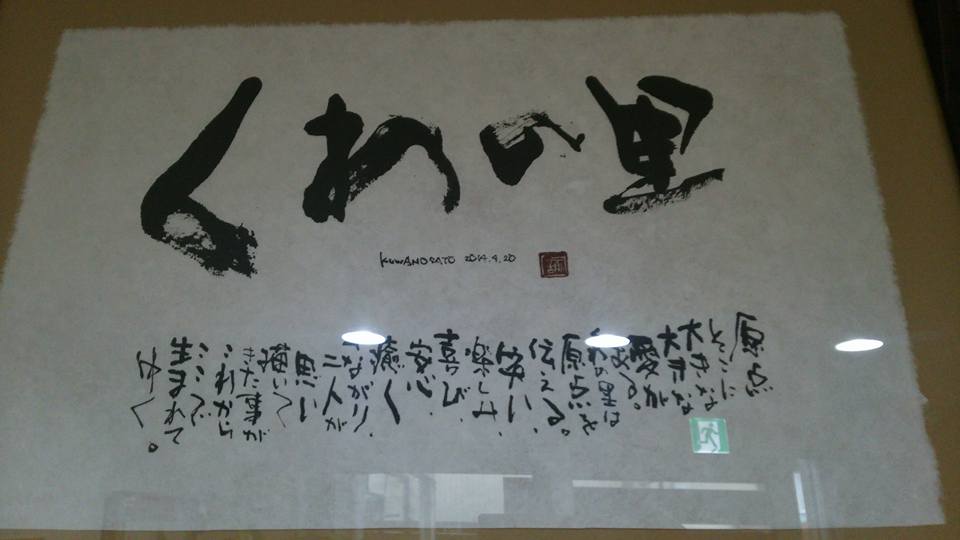 くわの里
KUWANOSATO 2014.4.20
原点
そこに
大きな
大きな
愛が
ある。
くわの里は
原点を
伝える。
楽しみ、
喜び、
安心、
癒し
つながり、
二人が
思い
描いて
きた事が
これから
ここで
生まれて
ゆく。